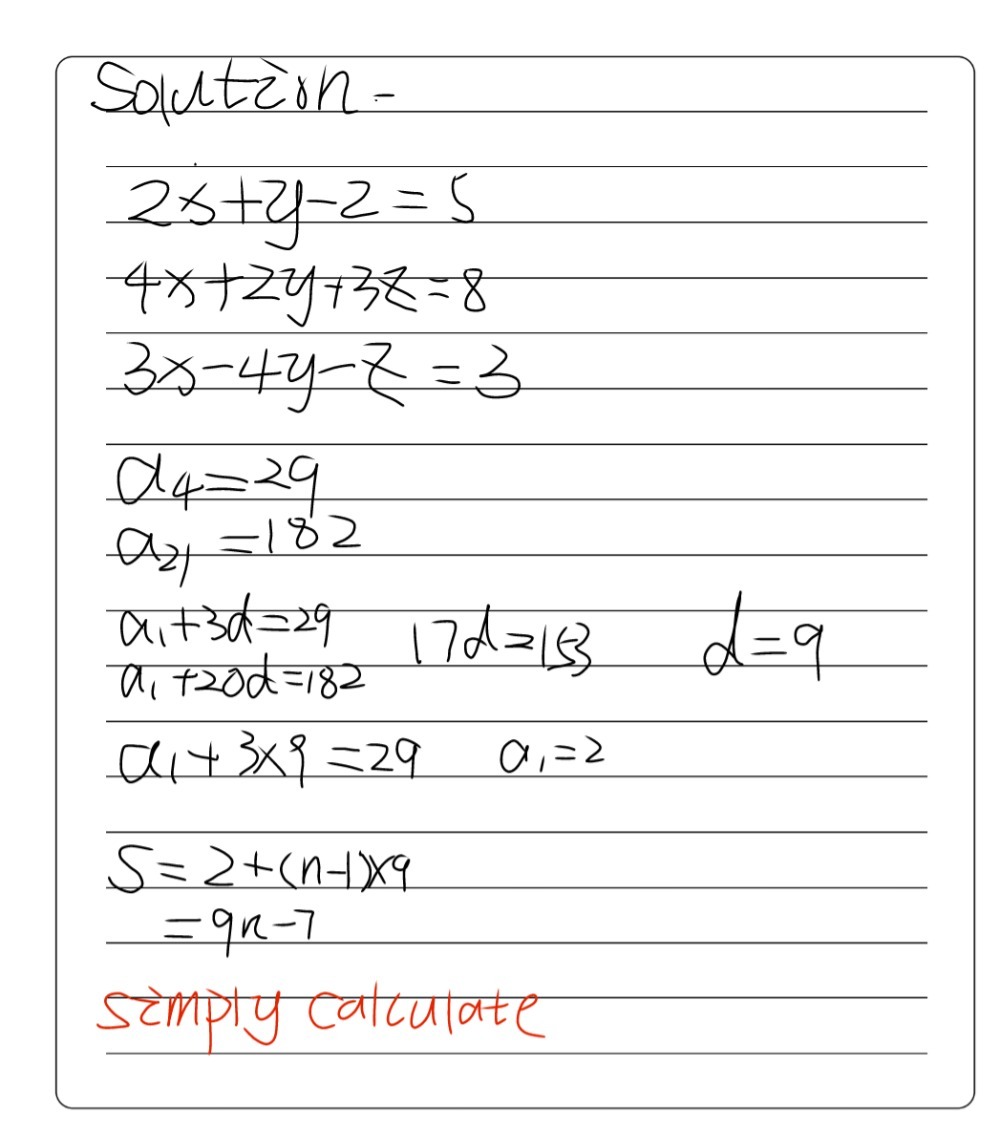 Solution -
2x+y-z=5
4x+2y+3z=8
3x-4y-z=3
a₄=29
a₂₁=182
a₁+3d=29 17d=153 d=9
a₁+20d=182
a₁+3×9=29 a₁=2
S=2+(n-1)×9
=9n-7
simply calculate